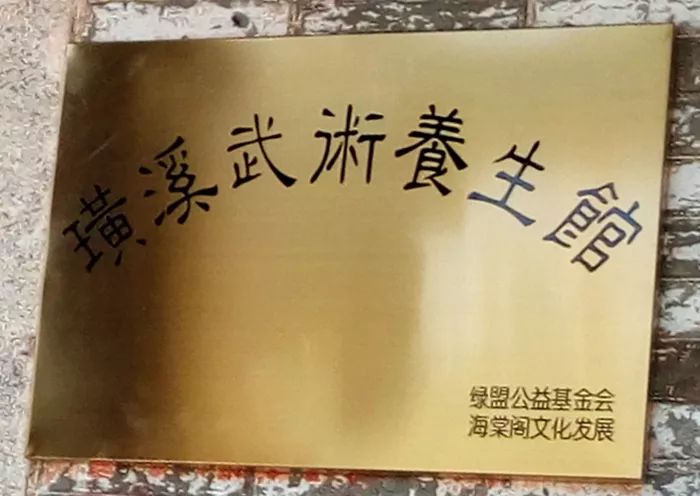 璜溪武術養生館
绿盟公益基金会
海棠阁文化发展